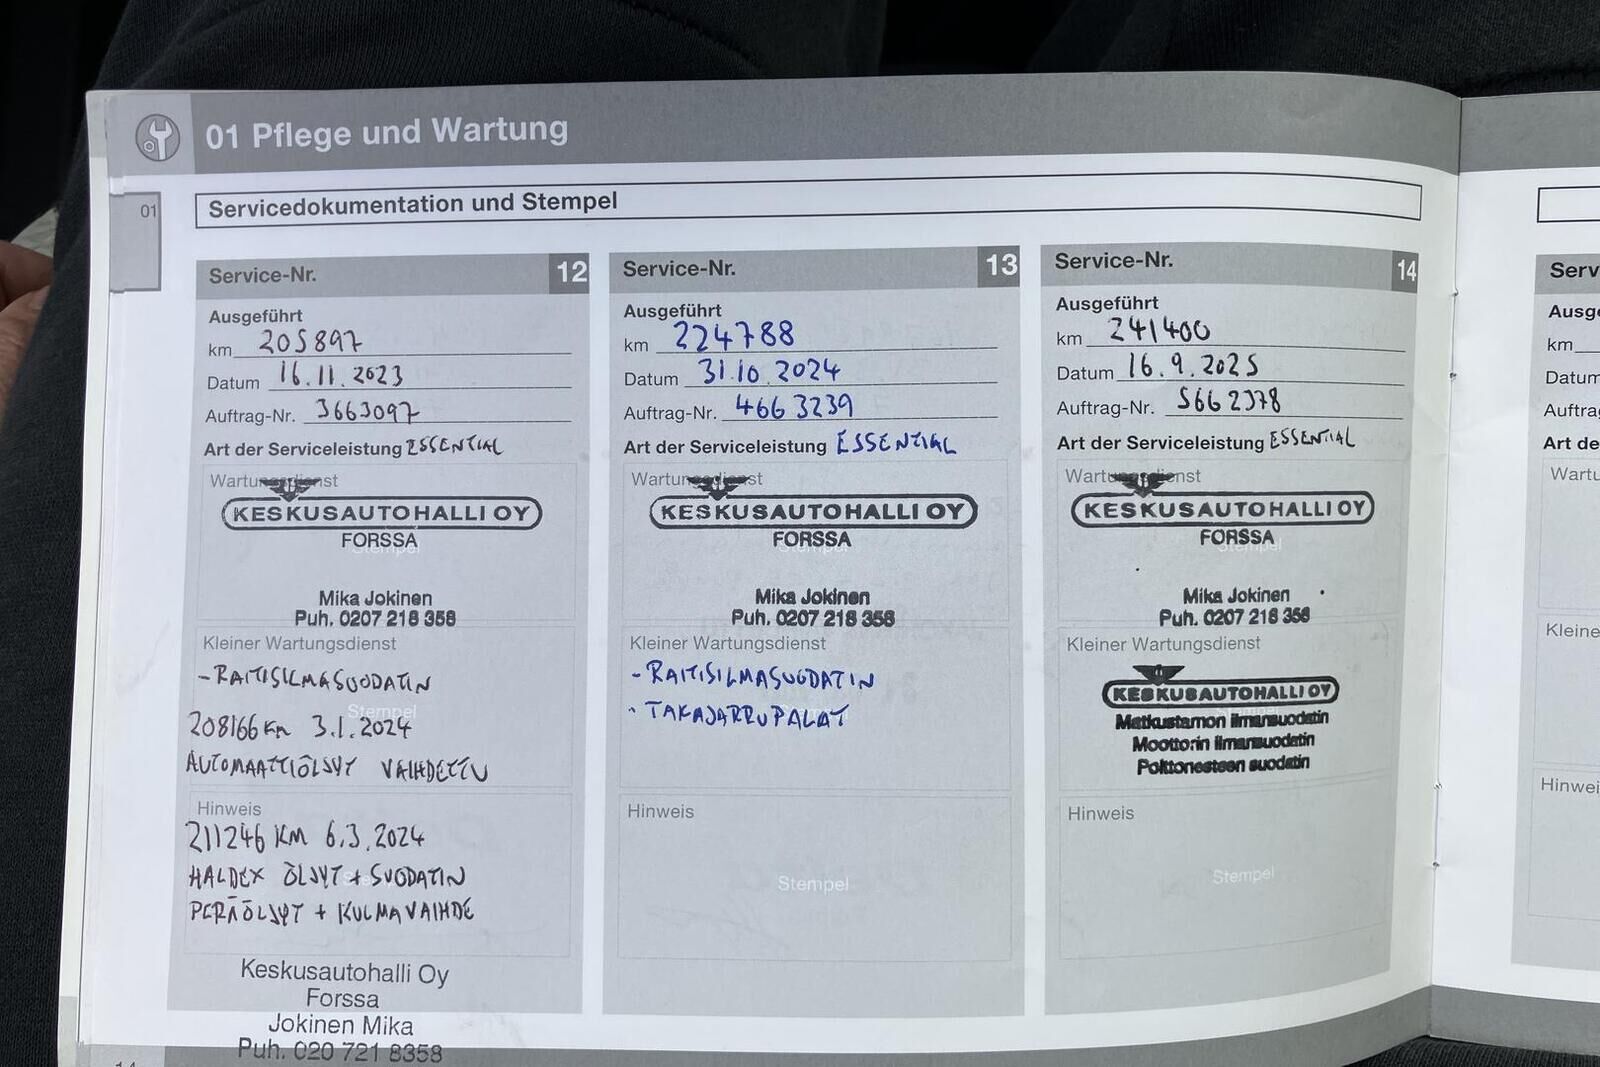 01 Pflege und Wartung
01
Servicedokumentation und Stempel
Service-Nr. 12
Ausgeführt
km 205897
Datum 16.11.2023
Auftrag-Nr. 3663097
Art der Serviceleistung ESSENTIAL
Wartungsdienst
KESKUSAUTOHALLI OY
FORSSA
Stempel
Mika Jokinen
Puh. 0207 218 358
Kleiner Wartungsdienst
-RAITISILMASUODATIN
Stempel
208166 Km 3.1.2024
AUTOMAATTIÖLJYT VAIHDETTU
Hinweis
211246 KM 6.3.2024
HALDEX ÖLJYT + SUODATIN
PERÄÖLJYT + KULMAVAIHDE
Keskusautohalli Oy
Forssa
Jokinen Mika
Puh. 020 721 8358
Service-Nr. 13
Ausgeführt
km 224788
Datum 31.10.2024
Auftrag-Nr. 4663239
Art der Serviceleistung ESSENTIAL
Wartungsdienst
KESKUSAUTOHALLI OY
FORSSA
Stempel
Mika Jokinen
Puh. 0207 218 358
Kleiner Wartungsdienst
-RAITISILMASUODATIN
- TAKAJARRUPALAT
Hinweis
Stempel
Service-Nr. 14
Ausgeführt
km 241400
Datum 16.9.2025
Auftrag-Nr. 5662378
Art der Serviceleistung ESSENTIAL
Wartungsdienst
KESKUSAUTOHALLI OY
FORSSA
Stempel
Mika Jokinen
Puh. 0207 218 358
Kleiner Wartungsdienst
KESKUSAUTOHALLI OY
Matkustamon ilmansuodatin
Moottorin ilmansuodatin
Polttonesteen suodatin
Hinweis
Stempel
Serv
Ausge
km
Datum
Auftra
Art de
Wartu
Kleine
Hinwei